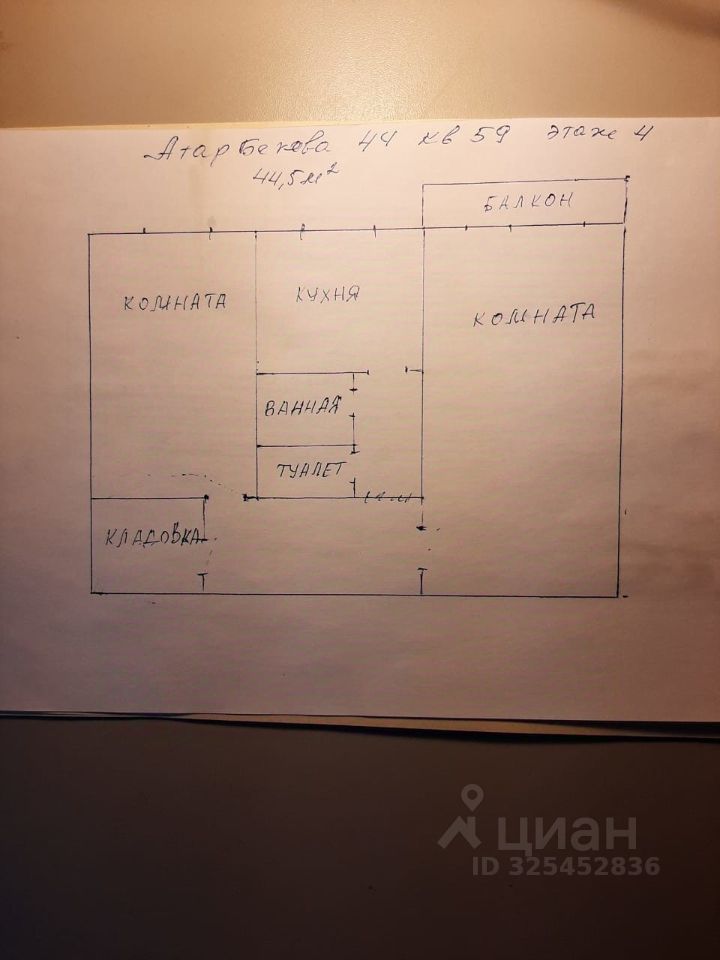 Атарбекова 44 кв 59 этаж 4
44,5 м²
БАЛКОН
КОМНАТА
КУХНЯ
КОМНАТА
ВАННАЯ
ТУАЛЕТ
КЛАДОВКА
циан
ID 325452836